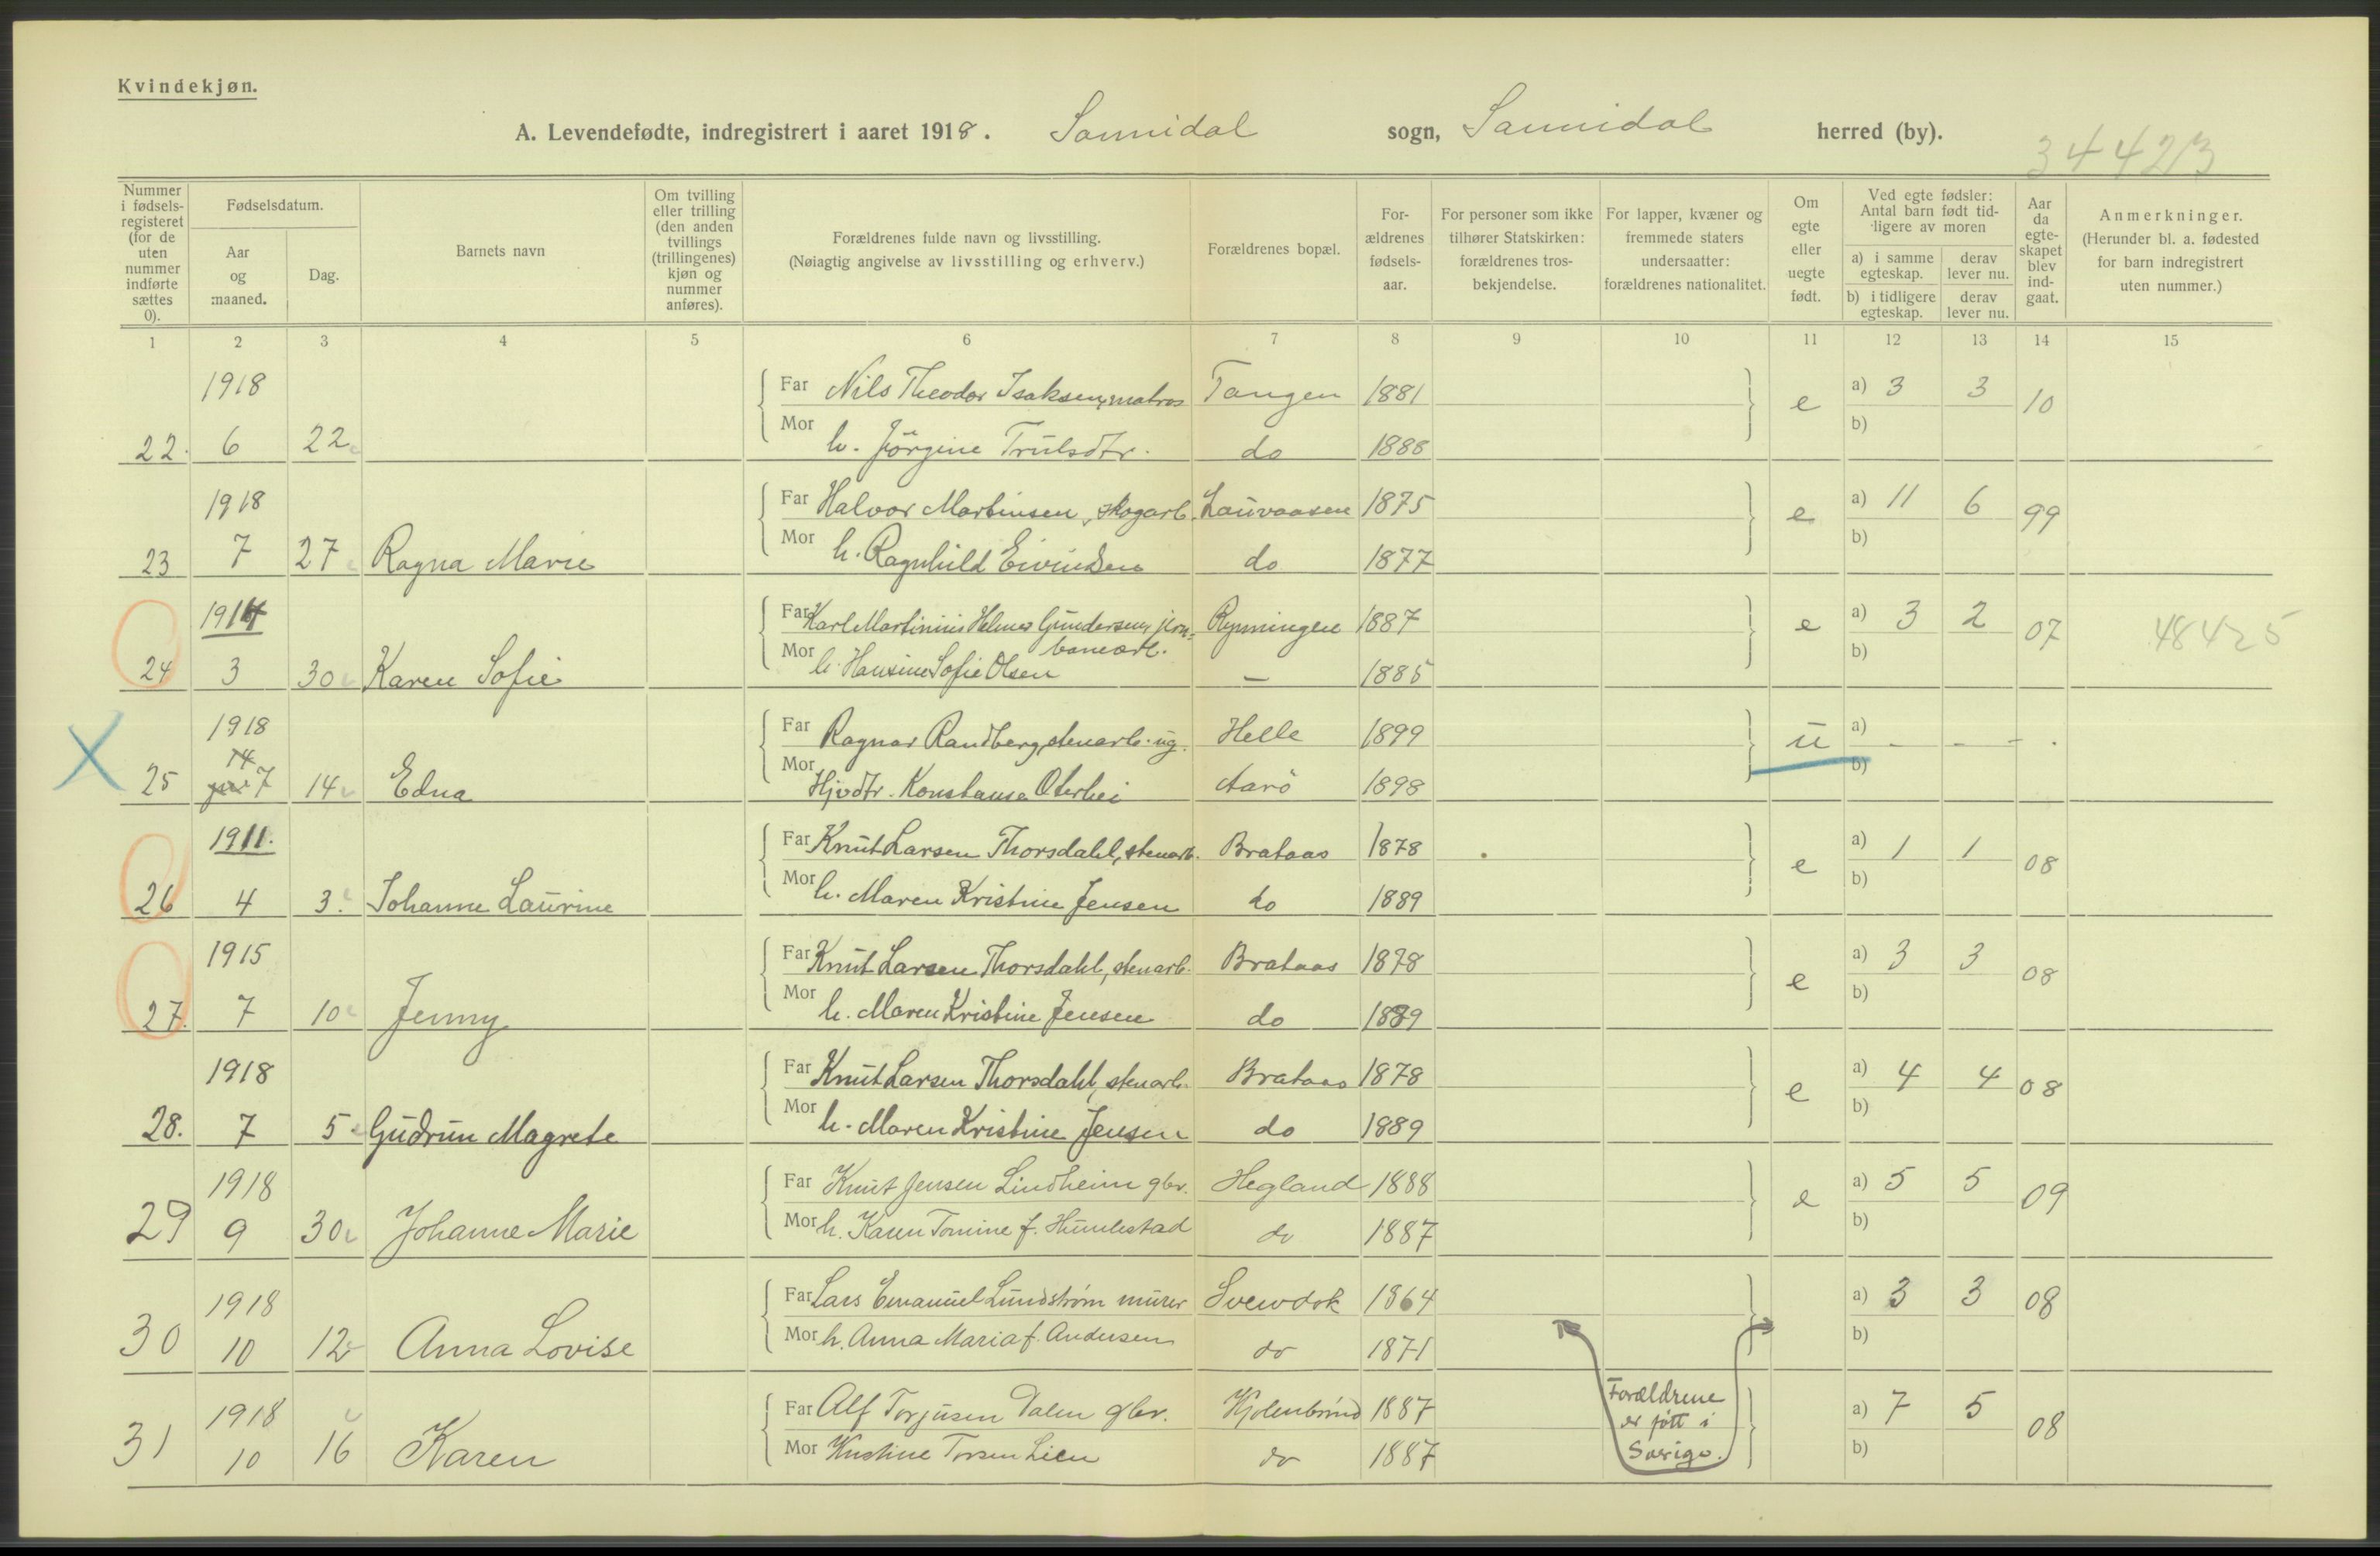 Kvindekjøn.
A. Levendefødte, indregistrert i aaret 1918. Sannidal sogn, Sannidal herred (by).
34423
Nummer i fødselsregisteret (for de uten nummer indførte sættes 0).
Fødselsdatum.
Aar og maaned.
Dag.
Barnets navn
Om tvilling eller trilling (den anden tvillings (trillingenes) kjøn og nummer anføres).
Forældrenes fulde navn og livsstilling.
(Nøiagtig angivelse av livsstilling og erhverv.)
Forældrenes bopæl.
Forældrenes fødselsaar.
For personer som ikke tilhører Statskirken: forældrenes trosbekjendelse.
For lapper, kvæner og fremmede staters undersaatter: forældrenes nationalitet.
Om egte eller uegte født.
Ved egte fødsler: Antal barn født tidligere av moren
a) i samme egteskap. derav lever nu.
b) i tidligere egteskap. derav lever nu.
Aar da egteskapet blev indgaat.
Anmerkninger.
(Herunder bl. a. fødested for barn indregistrert uten nummer.)
1 2 3 4 5 6 7 8 9 10 11 12 13 14 15
1918 Far Nils Theodor Isaksen, matros Tangen 1881 e a) 3 3 10
22. 6 22 Mor h. Jörgine Trulsdtr. do 1888 b)
1918 Far Halvor Martinsen, skogarb. Lauvaasen 1875 e a) 11 6 99
23 7 27 Ragna Marie Mor h. Ragnhild Eivindsen do 1877 b)
1914 Far Karl Martinius Helmer Gundersen, jern= Rynningen 1887 e a) 3 2 07 48425
banearb.
24 3 30 Karen Sofie Mor h. Hansine Sofie Olsen — 1885 b)
1918 Far Ragnar Randberg, stenarb. ug. Helle 1899 u a) - - -
14
25 7 14 Edna Mor Hjvdtr. Konstanse Oterhei Aarö 1898 b)
1911. Far Knut Larsen Thorsdahl, stenarb. Brataas 1878 e a) 1 1 08
26 4 3. Johanne Laurine Mor h. Maren Kristine Jensen do 1889 b)
1915 Far Knut Larsen Thorsdahl, stenarb. Brataas 1878 e a) 3 3 08
27. 7 10 Jenny Mor h. Maren Kristine Jensen do 1889 b)
1918 Far Knut Larsen Thorsdahl, stenarb. Brataas 1878 e a) 4 4 08
28. 7 5 Gudrun Magrete Mor h. Maren Kristine Jensen do 1889 b)
1918 Far Knut Jensen Lindheim gbr. Hegland 1888 e a) 5 5 09
29 9 30 Johanne Marie Mor h. Karen Tomine f. Humlestad do 1887 b)
1918 Far Lars Emanuel Lundstrøm murer 1864 a) 3 3 08
30 10 12 Anna Lovise Mor h. Anna Maria f. Andersen do 1871 b)
1918 Far Alf Torjusen Dalen gbr. Kjolenbrind 1887 a) 7 5 08
31 10 16 Karen Mor Kristine Torsen Lien do 1887 b)
Forældrene
er født i
Sverige.